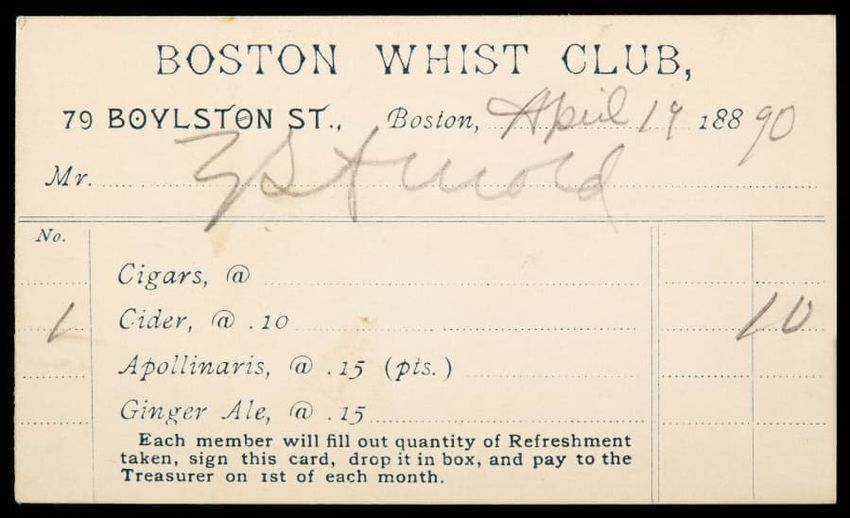 BOSTON WHIST CLUB,
79 BOYLSTON ST., Boston, April 19 188 90
Mr. Arnold
No.
Cigars, @
1 Cider, @ .10 10
Apollinaris, @ .15 (pts.)
Ginger Ale, @ .15
Each member will fill out quantity of Refreshment
taken, sign this card, drop it in box, and pay to the
Treasurer on 1st of each month.